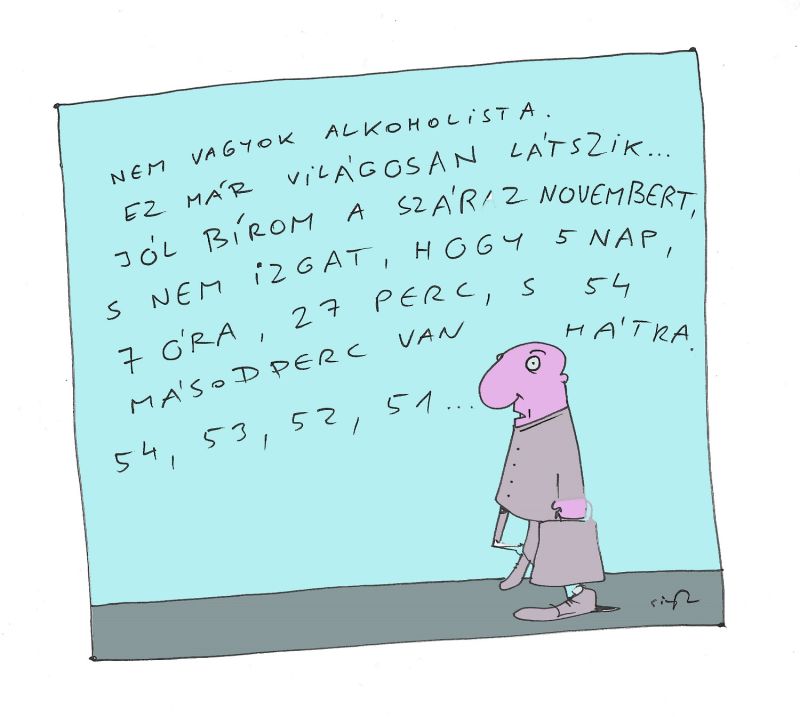 NEM VAGYOK ALKOHOLISTA.
EZ MÁR VILÁGOSAN LÁTSZIK...
JÓL BÍROM A SZÁRAZ NOVEMBERT,
S NEM IZGAT, HOGY 5 NAP,
7 ÓRA, 27 PERC, S 54
MÁSODPERC VAN HÁTRA.
54, 53, 52, 51...